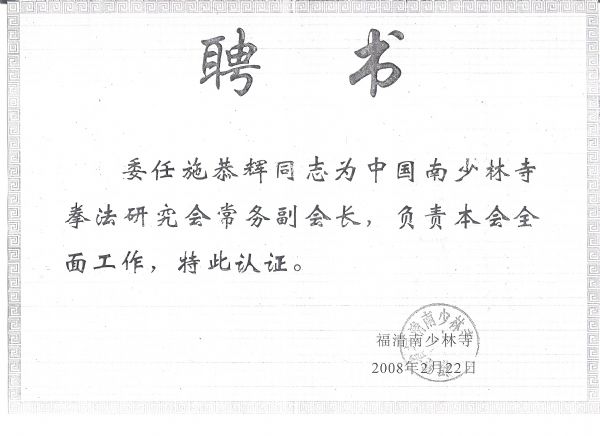 聘书
委任施恭辉同志为中国南少林寺
拳法研究会常务副会长，负责本会全
面工作，特此认证。
福清南少林寺
2008年2月22日